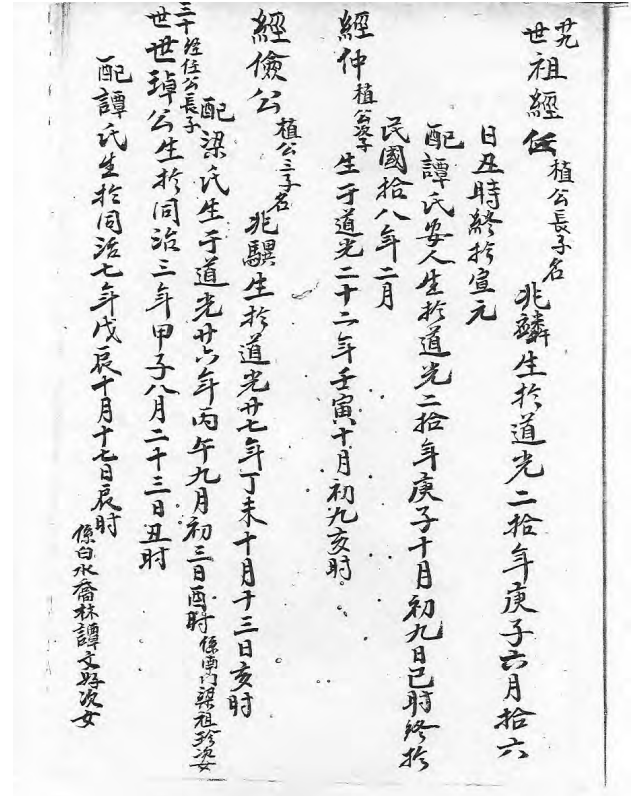 廿九世祖經任植公長子名兆麟生於道光二拾年庚子六月拾六
日丑時終於宣元
配譚氏安人生於道光二拾年庚子十月初九日巳时終於
民國拾八年二月
經仲植公次子生于道光二十二年壬寅十月初九亥时
經儉公植公三子名兆驥生於道光廿七年丁未十月十三日亥时
配梁氏生于道光廿六年丙午九月初三日酉时係南门梁祖珍次女
三十世經任公長子世璋公生於同治三年甲子八月二十三日丑时
配譚氏生於同治七年戊辰十月十七日辰时係白水喬林譚文好次女